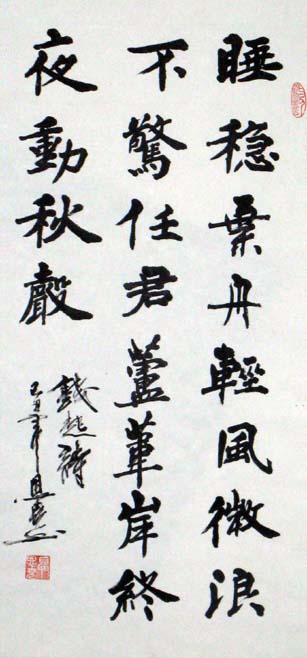 睡稳葉舟輕風微浪
不驚任君蘆葦岸終
夜動秋聲
錢起詩
己丑年